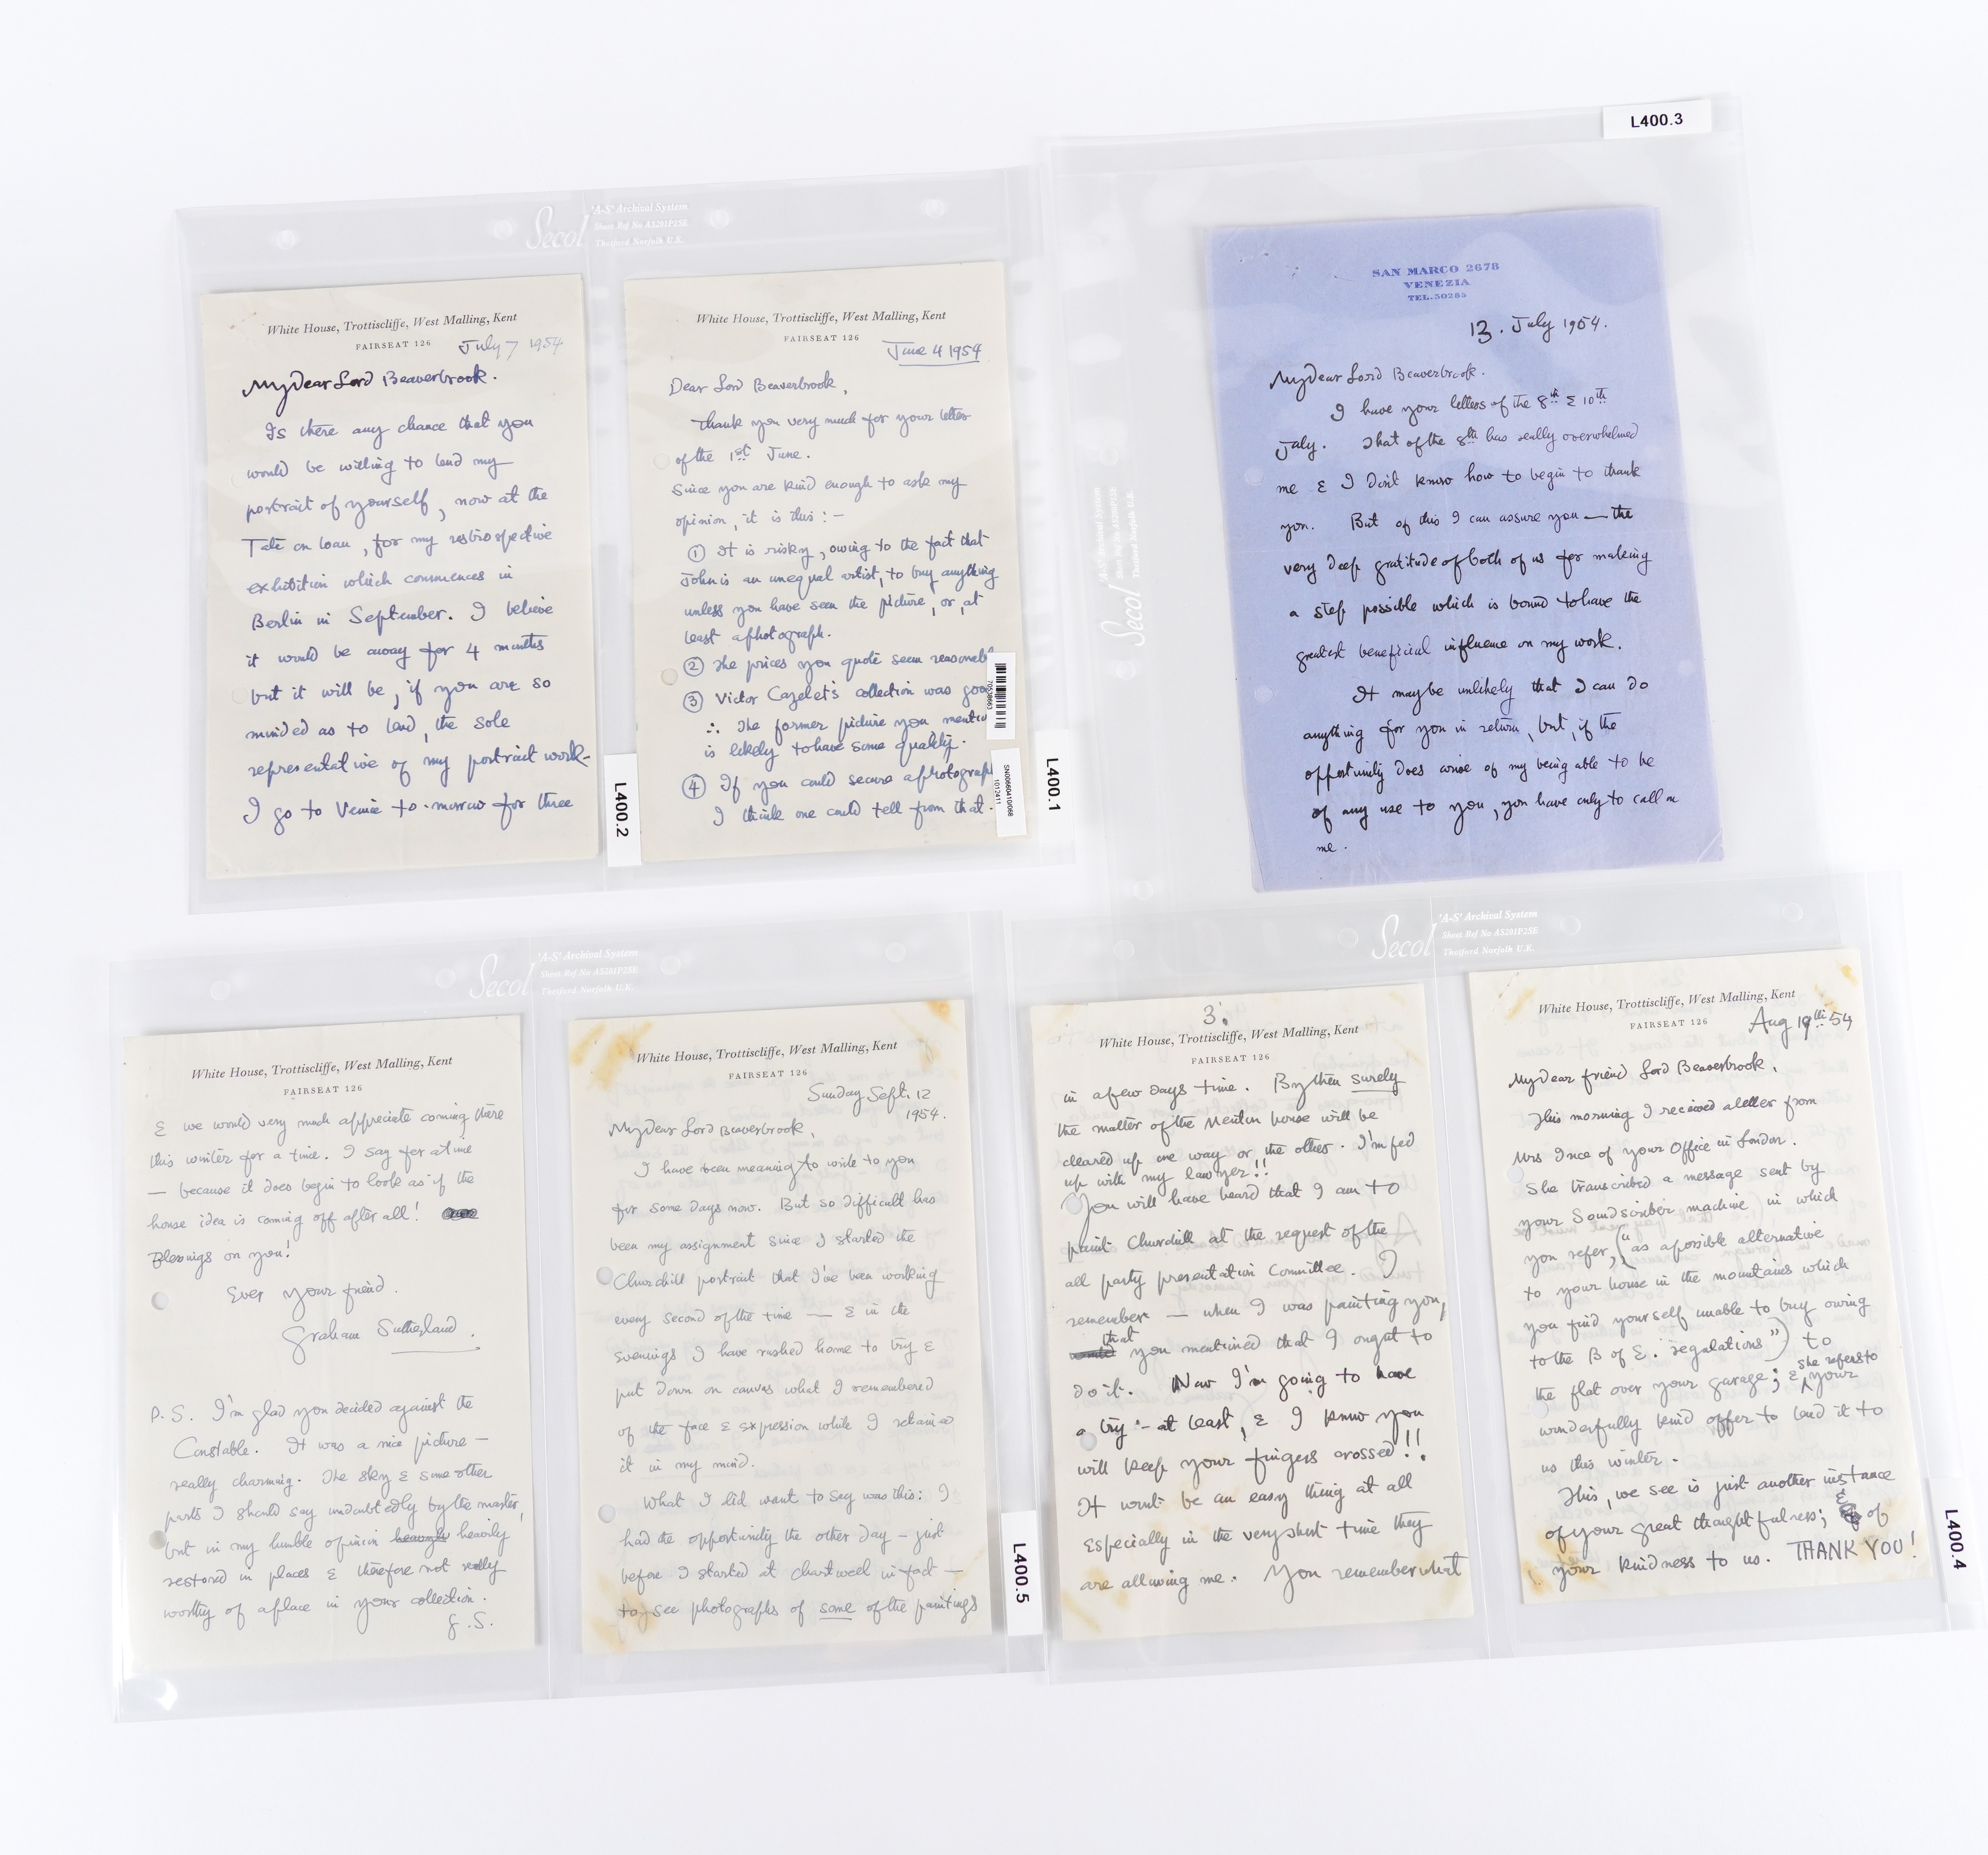 L400.3
Secol
'A-S' Archival System
Sheet Ref No AS201P2SE
Thetford Norfolk U.K.
White House, Trottiscliffe, West Malling, Kent
FAIRSEAT 126
July 7 1954
My Dear Lord Beaverbrook.
Is there any chance that you
would be willing to lend my
portrait of yourself, now at the
Tate on loan, for my restrospective
exhibition which commences in
Berlin in September. I believe
it would be away for 4 months
but it will be, if you are so
minded as to lend, the sole
representative of my portrait work-
I go to Venice to-morrow for three
L400.2
White House, Trottiscliffe, West Malling, Kent
FAIRSEAT 126
June 4 1954
Dear Lord Beaverbrook,
Thank you very much for your letter
of the 1st June.
Since you are kind enough to ask my
opinion, it is this:-
① It is risky, owing to the fact that
John is an unequal artist, to buy anything
unless you have seen the picture, or, at
least a photograph.
② The prices you quote seem reasonabl
③ Victor Cazelet's collection was goo
∴ The former picture you mentio
is likely to have some quality.
④ If you could secure a photograph
I think one could tell from that.
70538663
SN00660410/068
1012411
L400.1
'A-S' Archival System
Thetford Norfolk U.K.
Secol
SAN MARCO 2678
VENEZIA
TEL. 30285
13. July 1954.
My Dear Lord Beaverbrook.
I have your letters of the 8th & 10th
July. That of the 8th has really overwhelmed
me & I don't know how to begin to thank
you. But of this I can assure you — the
very deep gratitude of both of us for making
a step possible which is bound to have the
greatest beneficial influence on my work.
It may be unlikely that I can do
anything for you in return, but, if the
opportunity does arise of my being able to be
of any use to you, you have only to call on
me.
Secol
'A-S' Archival System
Sheet Ref No AS201P2SE
Thetford Norfolk U.K.
White House, Trottiscliffe, West Malling, Kent
FAIRSEAT 126
& we would very much appreciate coming there
this winter for a time. I say for a time
— because it does begin to look as if the
house idea is coming off after all!
Blessings on you!
Ever your friend.
Graham Sutherland.
P.S. I'm glad you decided against the
Constable. It was a nice picture —
really charming. The sky & some other
parts I should say undoubtedly by the master,
but in my humble opinion heavily
restored in places & therefore not really
worthy of a place in your collection.
G.S.
White House, Trottiscliffe, West Malling, Kent
FAIRSEAT 126
Sunday Sept. 12
1954.
My Dear Lord Beaverbrook,
I have been meaning to write to you
for some days now. But so difficult has
been my assignment since I started the
Churchill portrait that I've been working
every second of the time — & in the
evenings I have rushed home to try &
put down on canvas what I remembered
of the face & expression while I retained
it in my mind.
What I did want to say was this: I
had the opportunity the other day — just
before I started at Chartwell in fact —
to see photographs of some of the paintings
L400.5
Secol
'A-S' Archival System
Sheet Ref No AS201P2SE
Thetford Norfolk U.K.
3.
White House, Trottiscliffe, West Malling, Kent
FAIRSEAT 126
in a few days time. By then surely
the matter of the Menton house will be
cleared up one way or the other. I'm fed
up with my lawyer!!
You will have heard that I am to
paint Churchill at the request of the
all party presentation Committee. I
remember — when I was painting you,
that you mentioned that I ought to
do it. Now I'm going to have
a try - at least, & I know you
will keep your fingers crossed!!
It won't be an easy thing at all
especially in the very short time they
are allowing me. You remember what
White House, Trottiscliffe, West Malling, Kent
FAIRSEAT 126
Aug 19th 54
My Dear friend Lord Beaverbrook,
This morning I received a letter from
Mrs Ince of your Office in London.
She transcribed a message sent by
your Soundscriber machine in which
you refer, ("as a possible alternative
to your house in the mountains which
you find yourself unable to buy owing
to the B of E. regulations") to
the flat over your garage; & she refers to your
wonderfully kind offer to lend it to
us this winter.
This, we see is just another instance
of your great thoughtfulness; & of
your kindness to us. THANK YOU!
L400.4